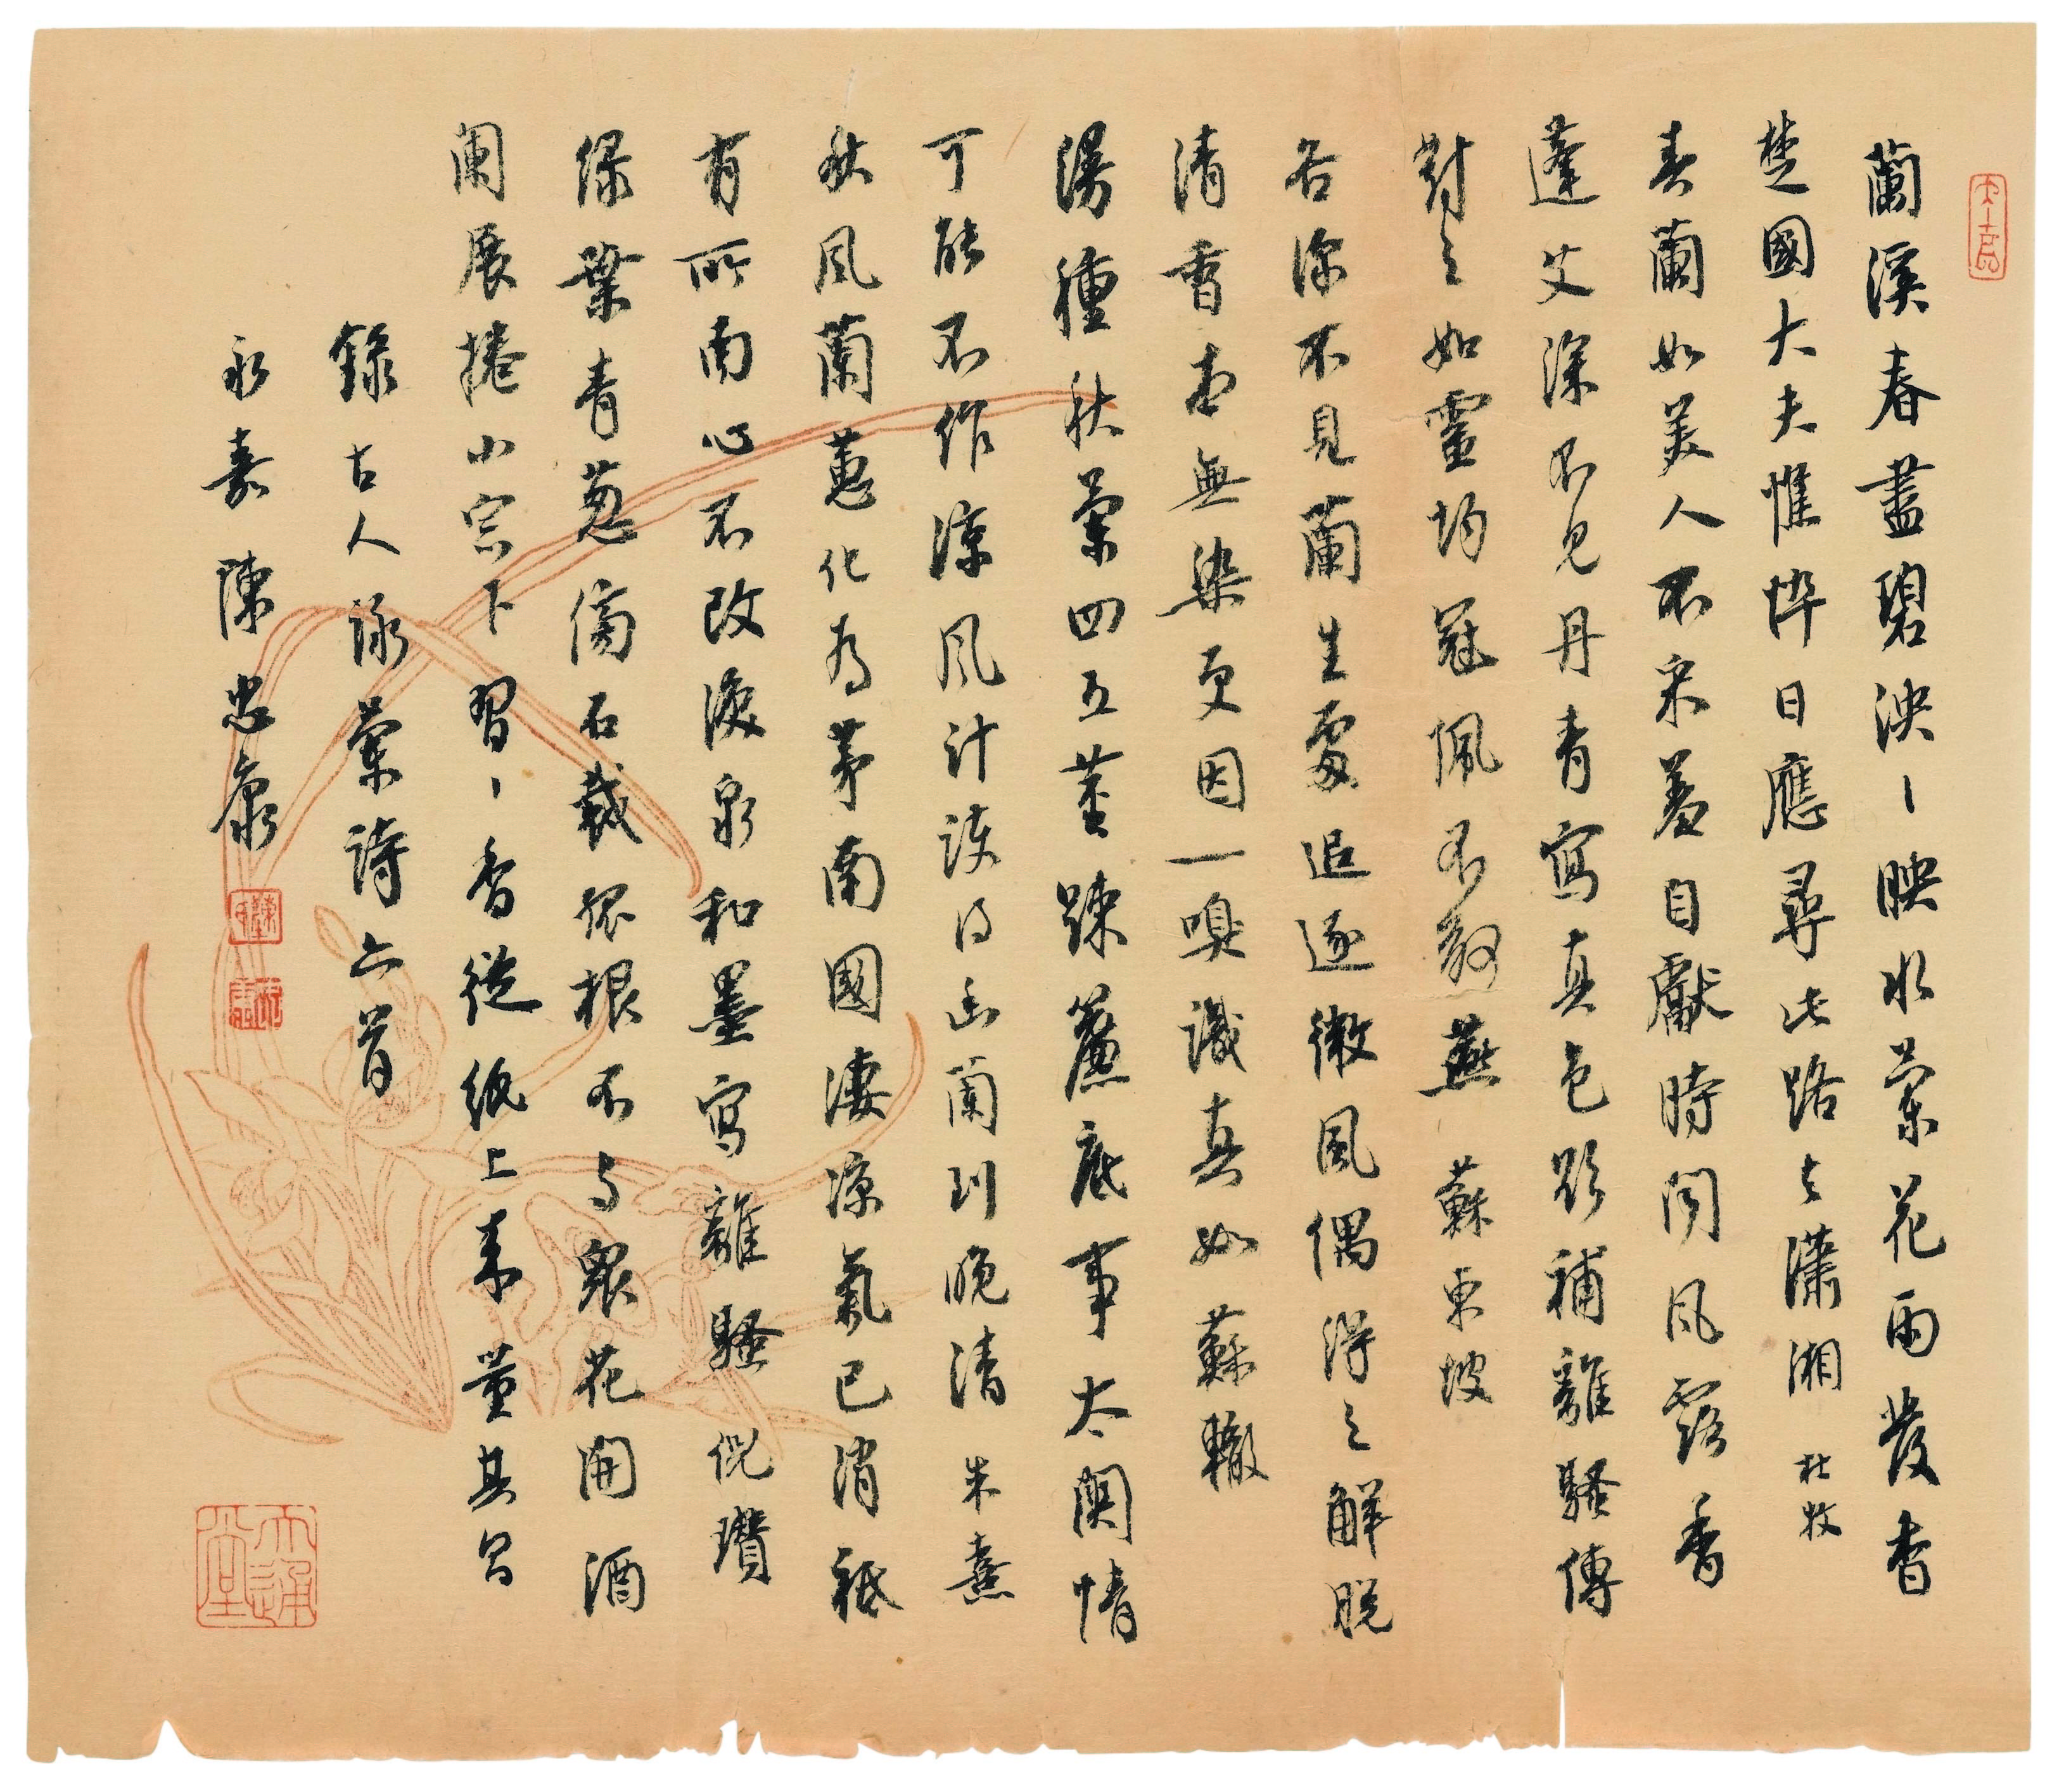 蘭溪春盡碧泱丶映水蘭花雨發香
楚國大夫憔悴日應尋此路去瀟湘 杜牧
春蘭如美人不采羞自獻時聞風露香
蓬艾深不見丹青寫真色欲補離騷傳
對之如靈均冠佩不敢燕 蘇東坡
谷深不見蘭生處追逐微風偶得之解脫
清香本無染更因一嗅識真如 蘇轍
漫種秋蘭四五莖踈簾底事太關情
可能不作涼風計護得幽蘭到晚清 朱熹
秋風蘭蕙化為茅南國淒涼氣已消祗
有所南心不改淚泉和墨寫離騷 倪瓚
綠葉青葱傍石栽孤根不与衆花開酒
闌展捲小窗下習丶香從紙上來 董其昌
錄古人詠蘭詩六首
永嘉陳忠康
大通堂